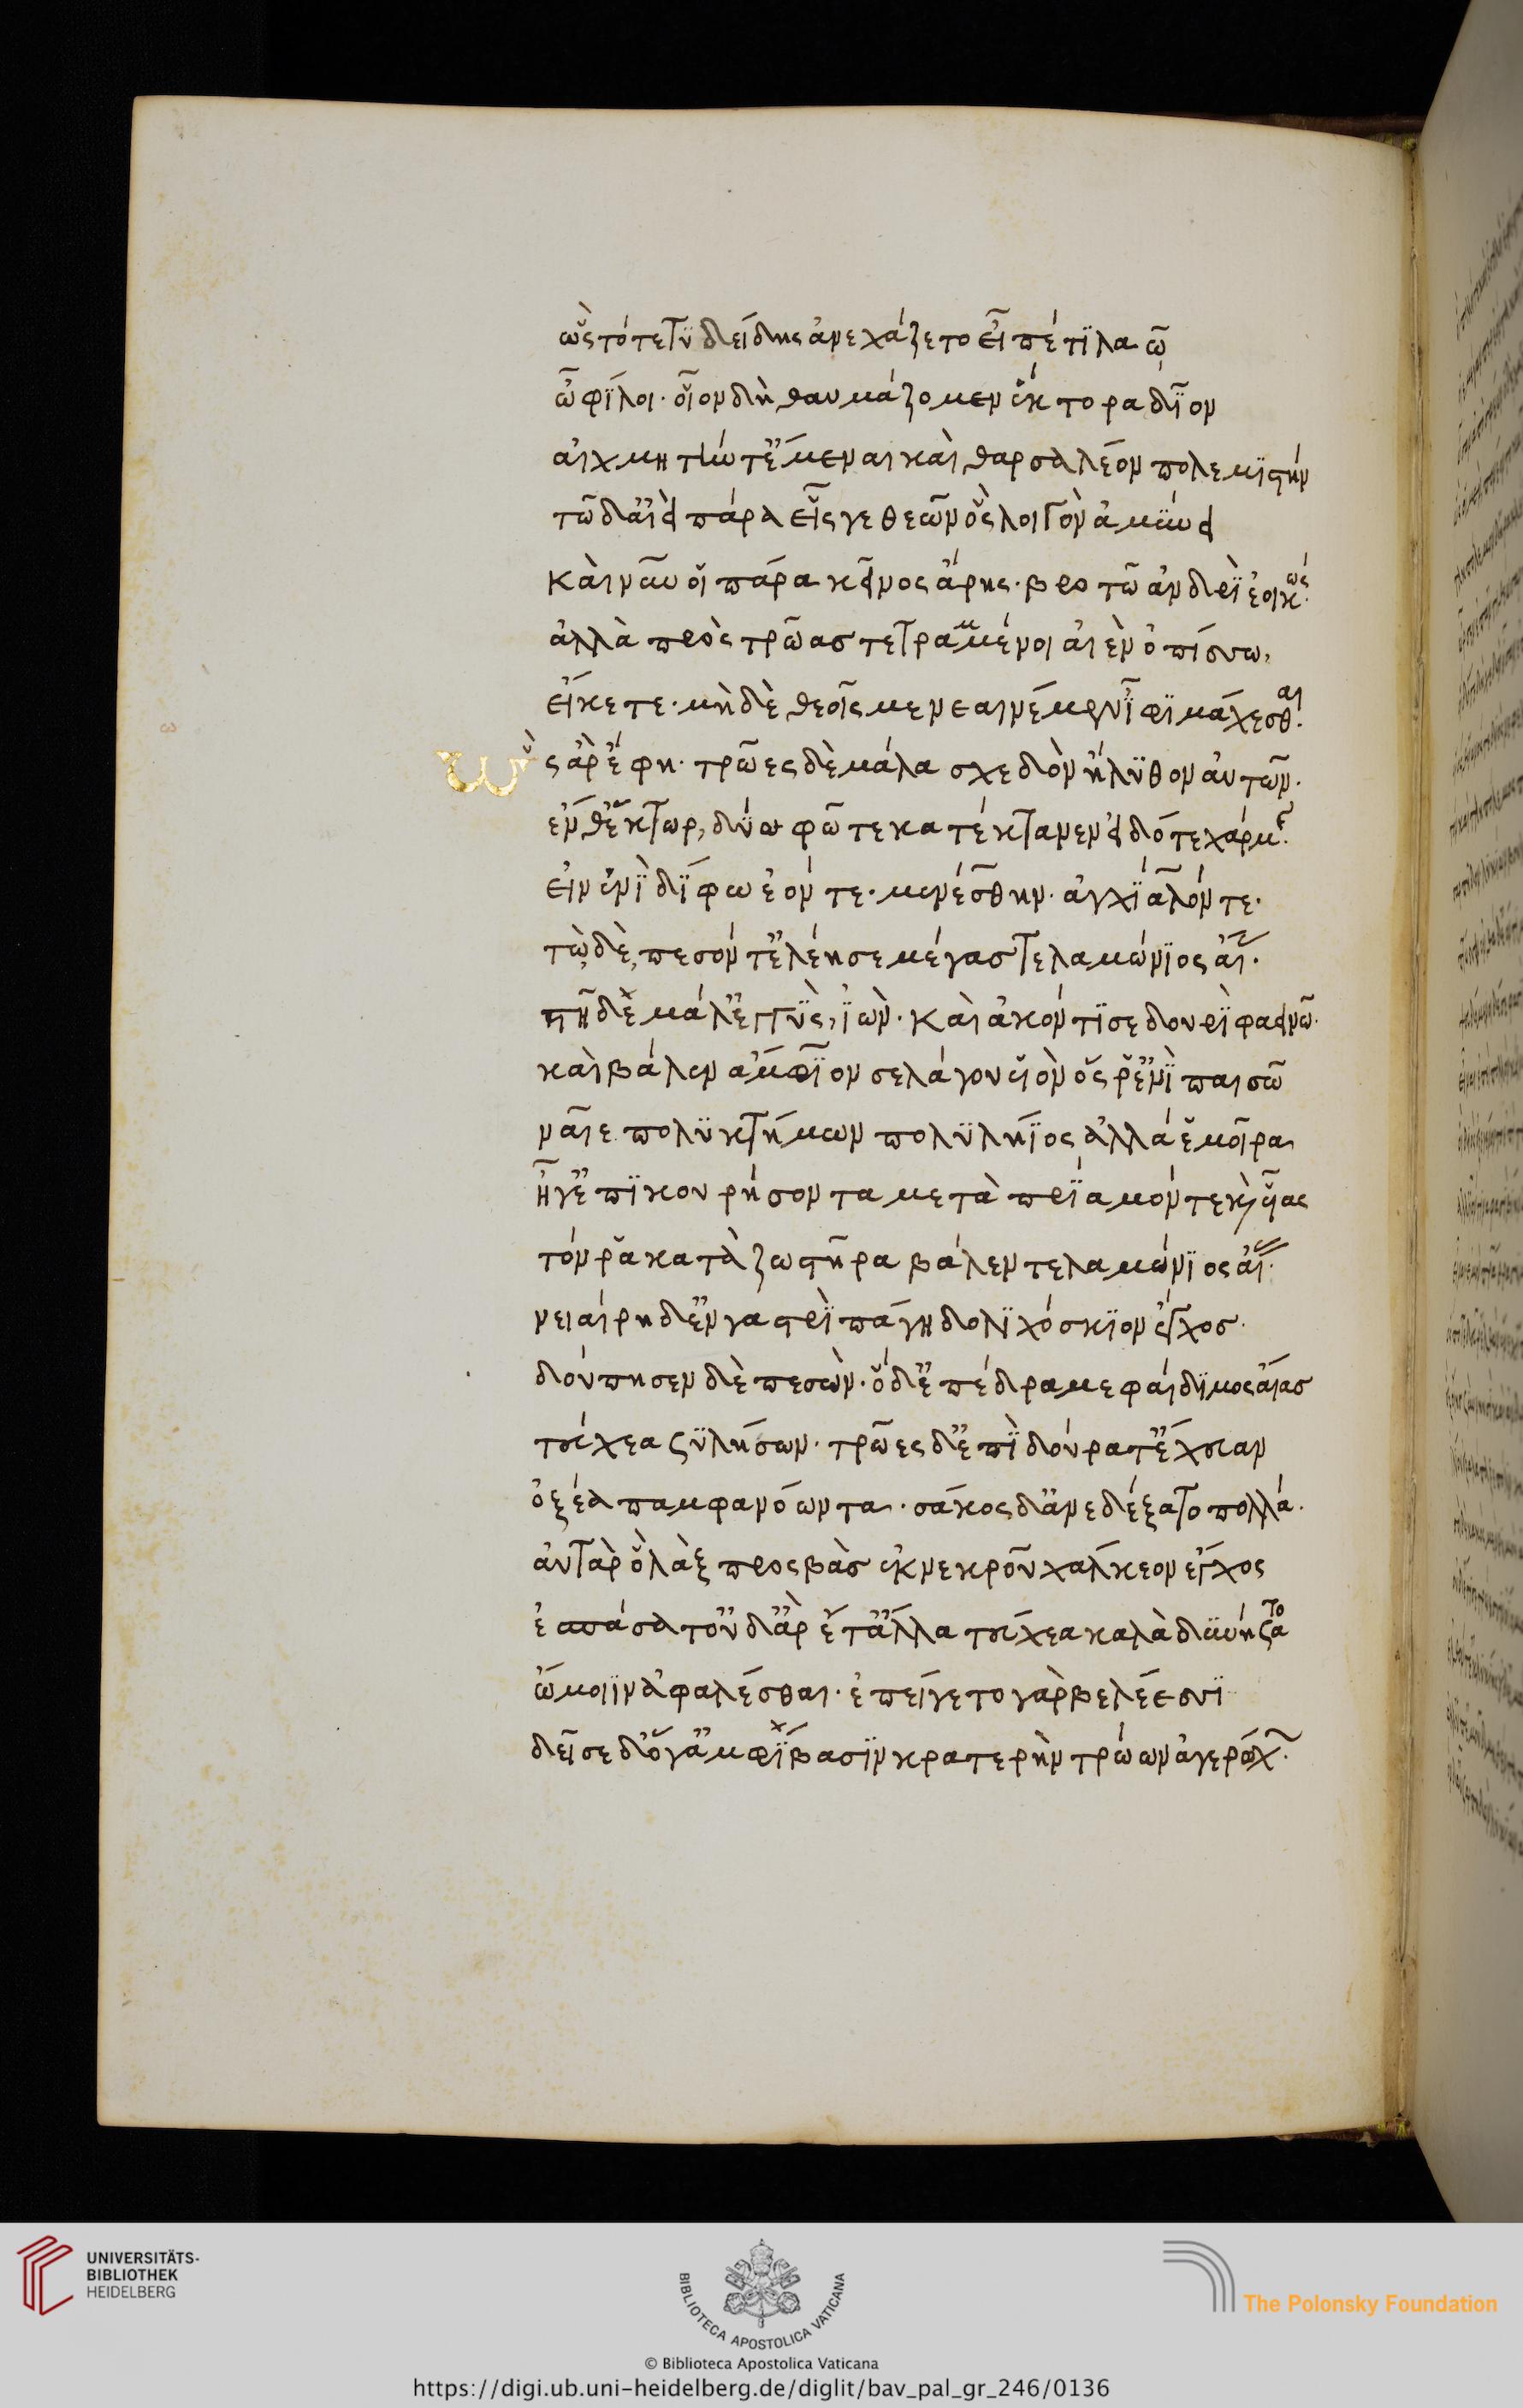 ὣς τότε τυδείδης ἀνεχάζετο εἶπέ τε λαῶ
ὦ φίλοι· οἷον δὴ θαυμάζομεν ἕκτορα δῖον
αἰχμητὴν τ' ἔμεναι καὶ θαρσαλέον πολεμιστήν
τῶ δ' αἰεὶ πάρα εἷς γε θεῶν ὃς λοιγὸν ἀμύνει
καὶ νῦν οἱ πάρα κεῖνος ἄρης· βροτῶ ἀνδρὶ ἐοικώς·
ἀλλὰ πρὸς τρῶας τετραμμένοι αἰὲν ὀπίσσω,
εἴκετε· μὴ δὲ θεοῖς μενεαινέμεν ἶφι μάχεσθαι.
ὣς ἄρ' ἔφη· τρῶες δὲ μάλα σχεδὸν ἤλυθον αὐτῶν·
ἔνθ' ἕκτωρ, δύω φῶτε κατέκτανεν εἰδότε χάρμης
εἰν ἑνὶ δίφρω ἐόντε· μενέσθην· ἀγχίαλόν τε·
τὼ δὲ, πεσόντ' ἐλέησε μέγας τελαμώνιος αἴας·
στῆ δὲ μάλ' ἐγγὺς, ἰὼν· καὶ ἀκόντισε δουρὶ φαεινῶ·
καὶ βάλεν ἄμφιον σελάγου υἱὸν ὅς ῥ' ἐνὶ παισῶ
ναῖε πολυκτήμων πολυλήϊος ἀλλά ἑ μοῖρα
ἦγ' ἐπικουρήσοντα μετὰ πρίαμόν τε καὶ υἷας
τόν ῥα κατὰ ζωστῆρα βάλεν τελαμώνιος αἴας·
νειαίρη δ' ἐν γαστρὶ πάγη δολιχόσκιον ἔγχος·
δούπησεν δὲ πεσὼν· ὅ δ' ἐπέδραμε φαίδιμος αἴας
τεύχεα συλήσων· τρῶες δ' ἐπὶ δούρατ' ἔχευαν
ὀξέα παμφανόωντα· σάκος δ' ἀνεδέξατο πολλά·
αὐτὰρ ὃ λὰξ προσβὰς ἐκ νεκροῦ χάλκεον ἔγχος
ἐσπάσατ' οὐδ' ἂρ ἔτ' ἄλλα τεύχεα καλὰ δυνήσατο
ὤμοιιν ἀφαλέσθαι· ἐπείγετο γὰρ βελέεσσι
δεῖσε δ' ὅγ' ἀμφίβασιν κρατερὴν τρώων ἀγερώχων·
UNIVERSITÄTS-
BIBLIOTHEK
HEIDELBERG
BIBLIOTECA APOSTOLICA VATICANA
The Polonsky Foundation
© Biblioteca Apostolica Vaticana
https://digi.ub.uni-heidelberg.de/diglit/bav_pal_gr_246/0136